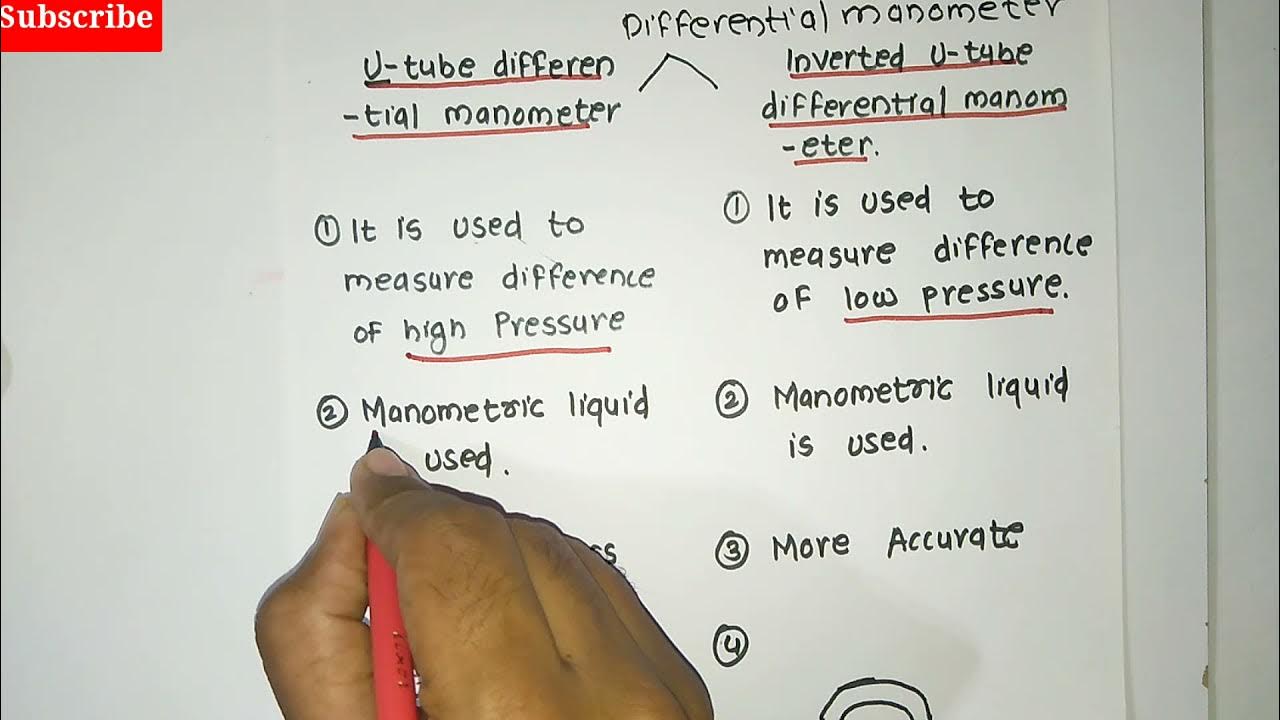 Subscribe
Differential manometer
U-tube differen
-tial manometer
① It is used to
measure difference
of high Pressure
② Manometric liquid
used.
Inverted U-tube
differential manom
-eter.
① It is used to
measure difference
of low pressure.
② Manometric liquid
is used.
③ More Accurate
④